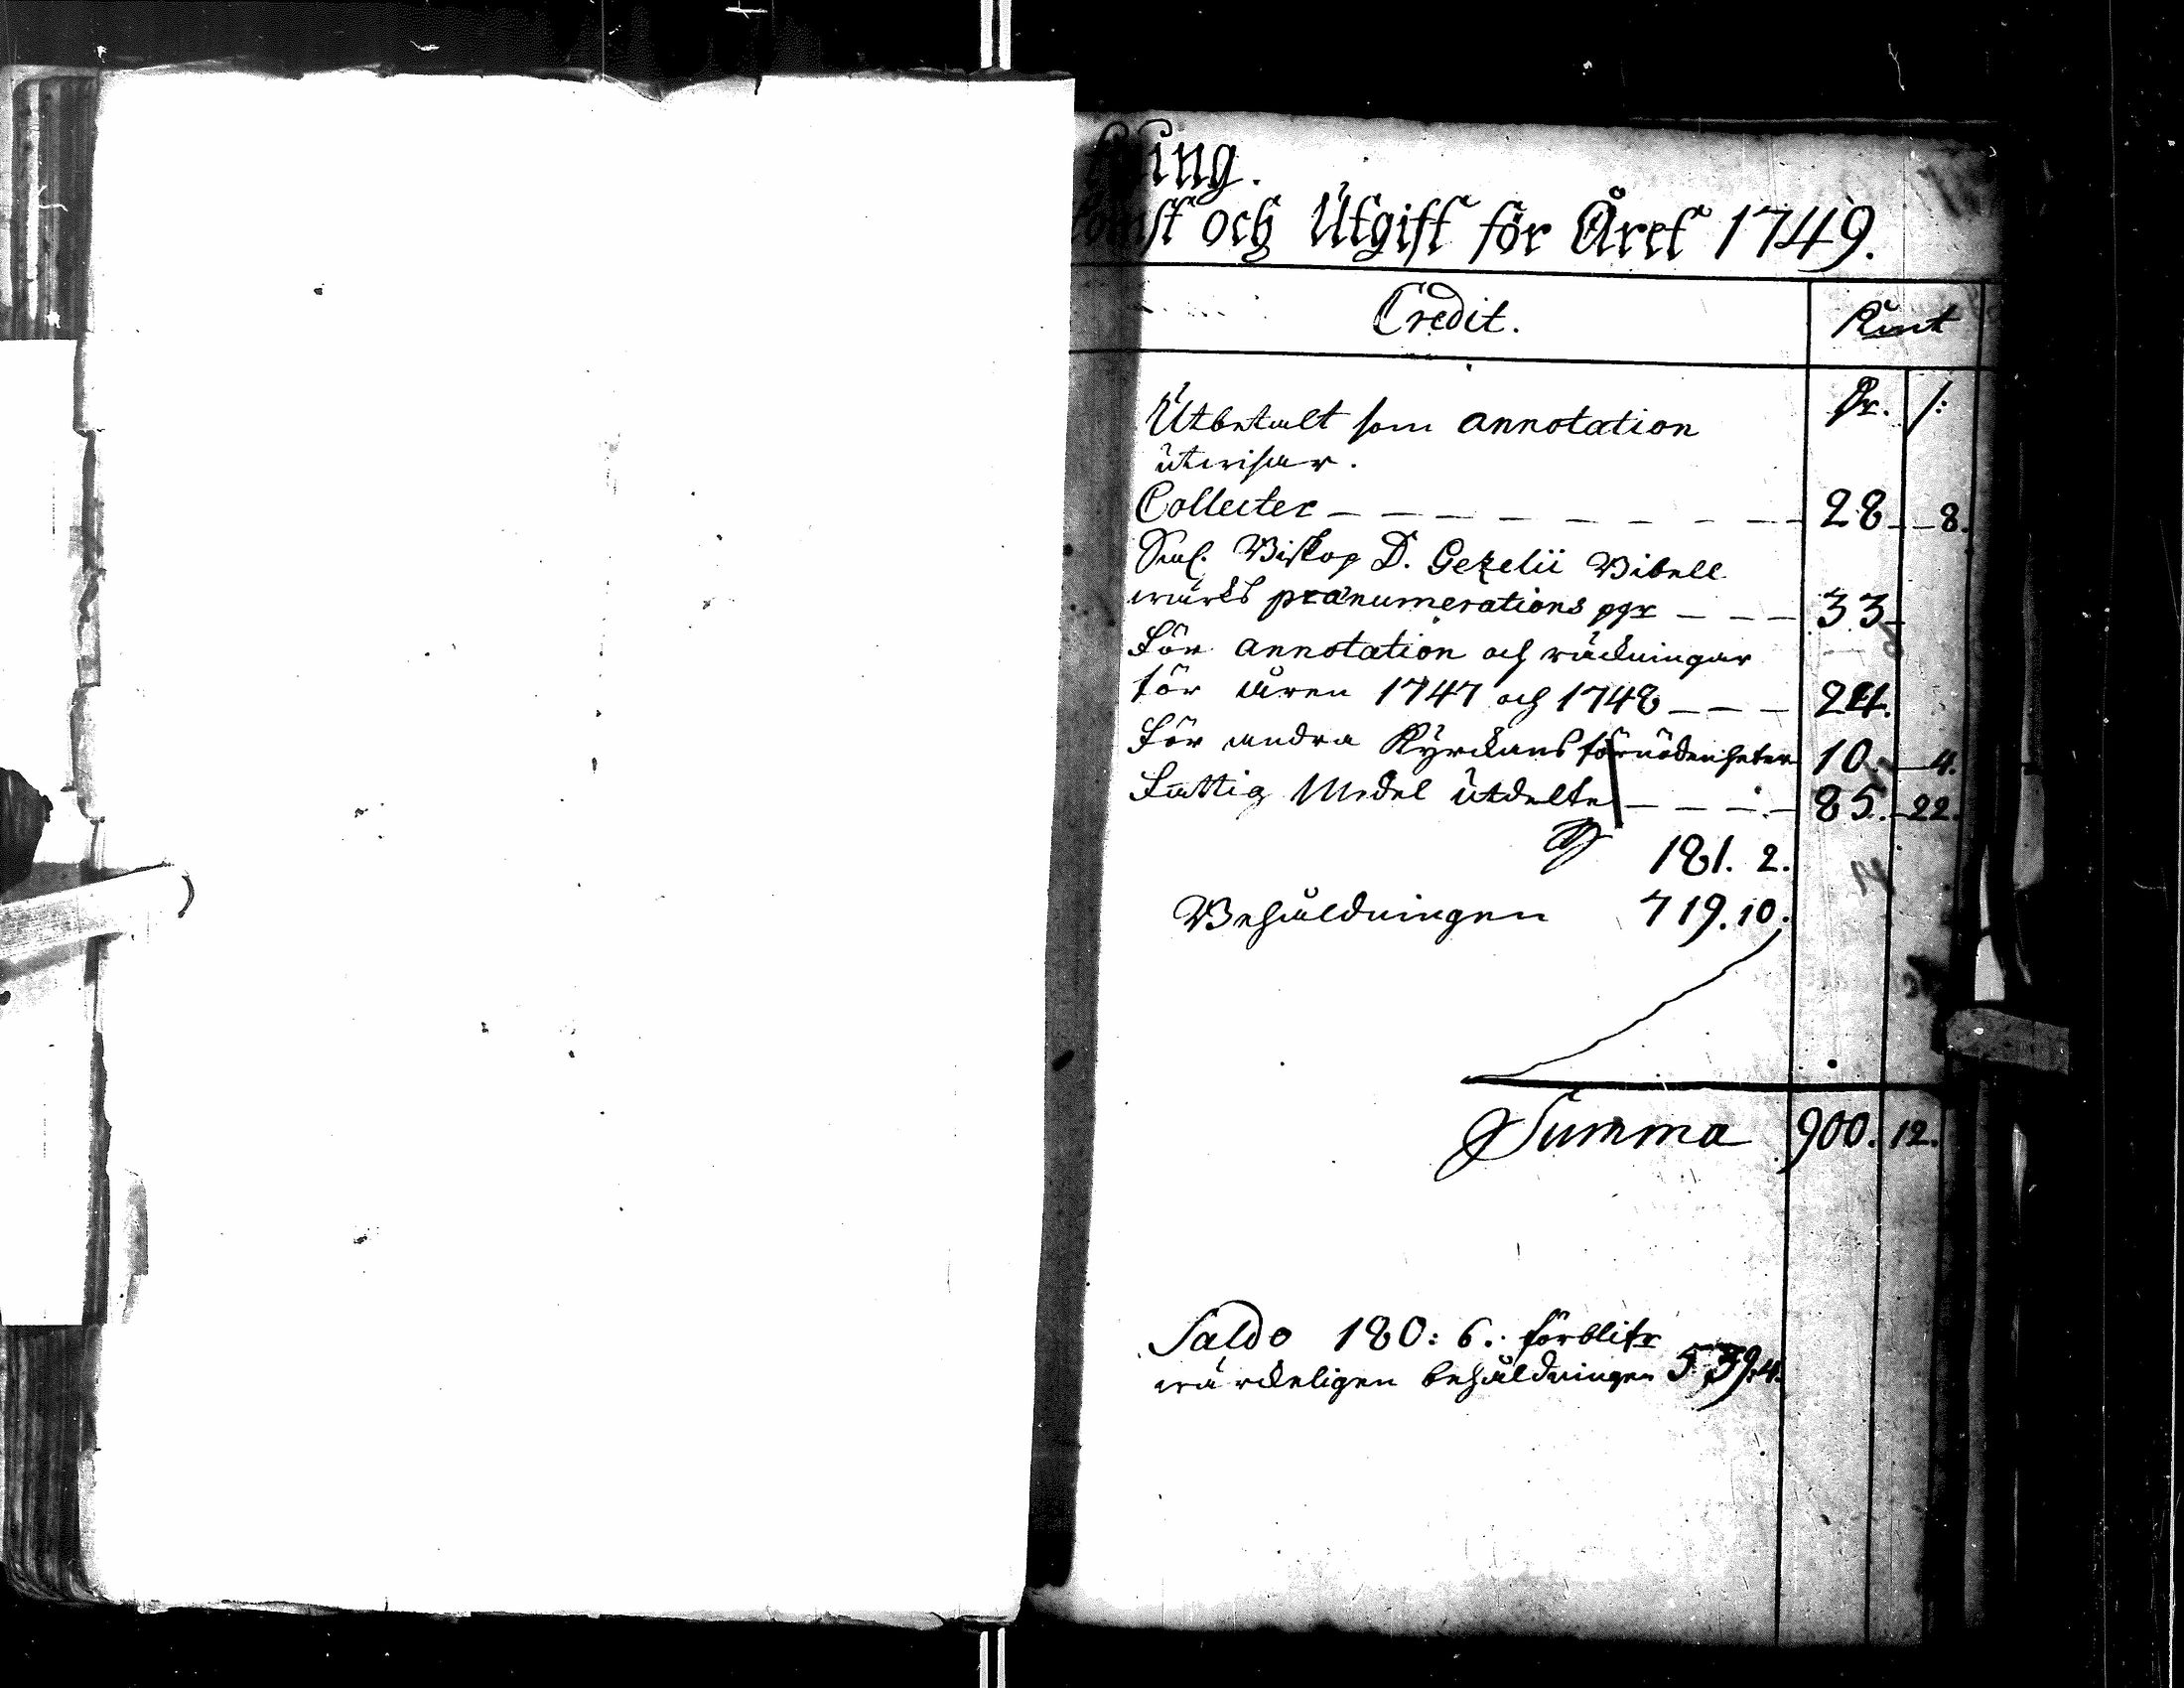 ning.
komst och Utgift för Året 1749.
Credit. Kmt
Dr. /:
Utbetalt som annotation
utwisar.
Collecter — — — — — — — — 28 — 8.
Sal. Biskop D. Gezelii Bibell
wärks prænumerations pgr — — — 33 —
För annotation och räckningar
för åren 1747 och 1748 — — — 24.
För andra Kyrckans förnödenheter 10. — 4.
Fattig Medel utdelte — — — — 85. — 22.
181. 2.
Behåldningen 719. 10.
Summa 900. 12.
Saldo 180: 6. förblifr
wärckeligen behåldningen 539:4.